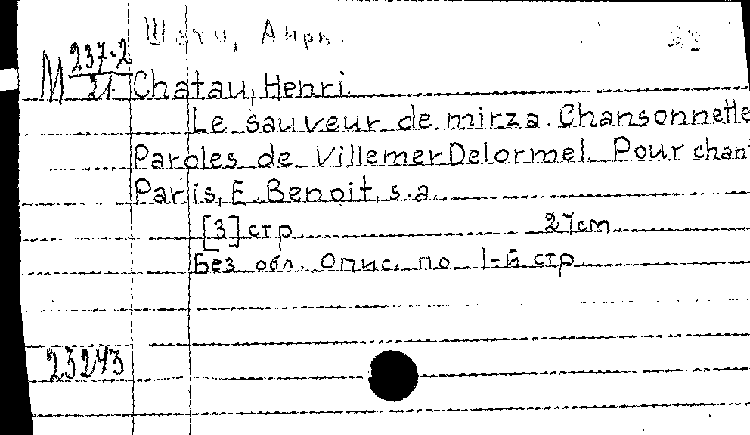 Шату, Анри.
М 237-2
21. Chatau, Henri.
Le sauveur de mirza. Chansonnette
Paroles de Villemer Delormel. Pour chant
Paris, E. Benoit, s.a.
[3] стр. 27 см
Без обл. Опис. по 1-й стр.
23243